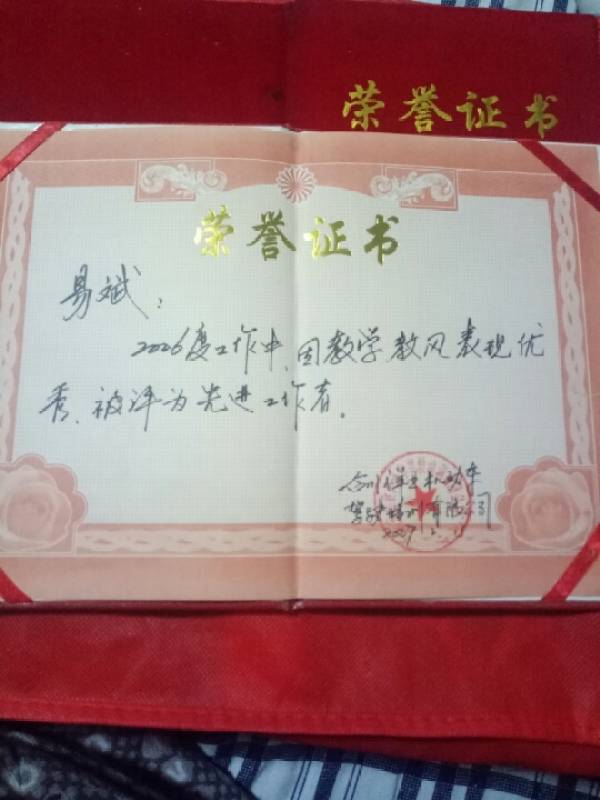 荣誉证书
荣誉证书
易斌:
2026度工作中、因教学教风表现优
秀、被评为先进工作者。
机动车
驾驶培训有限公司
2027